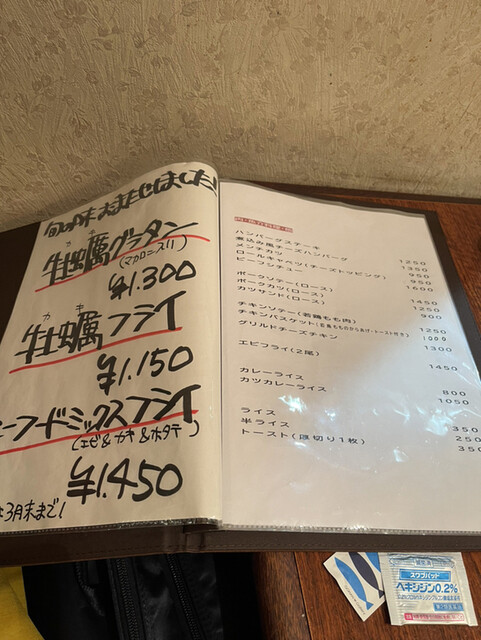 旬の味 大おまたせしました!
カキ
牡蠣グラタン
(マカロニ入り)
¥1.300
カキ
牡蠣フライ
¥1.150
ーフードミックスフライ
(エビ&カキ&ホタテ)
¥1.450
3月末まで!
ハンバーグステーキ
煮込み風チーズハンバーグ 1250
メンチカツ 1350
ロールキャベツ(チーズトッピング) 950
ビーフシチュー 950
1600
ポークソテー(ロース)
ポークカツ(ロース) 1450
カツサンド(ロース) 1250
900
チキンソテー(若鶏もも肉)
チキンバスケット(若鶏もものからあげ・トースト付き) 1250
グリルドチーズチキン 1000
1300
エビフライ(2尾)
1450
カレーライス
カツカレーライス 800
1050
ライス
半ライス 350
トースト(厚切り1枚) 250
350
スワブパッド
ヘキシジン0.2%